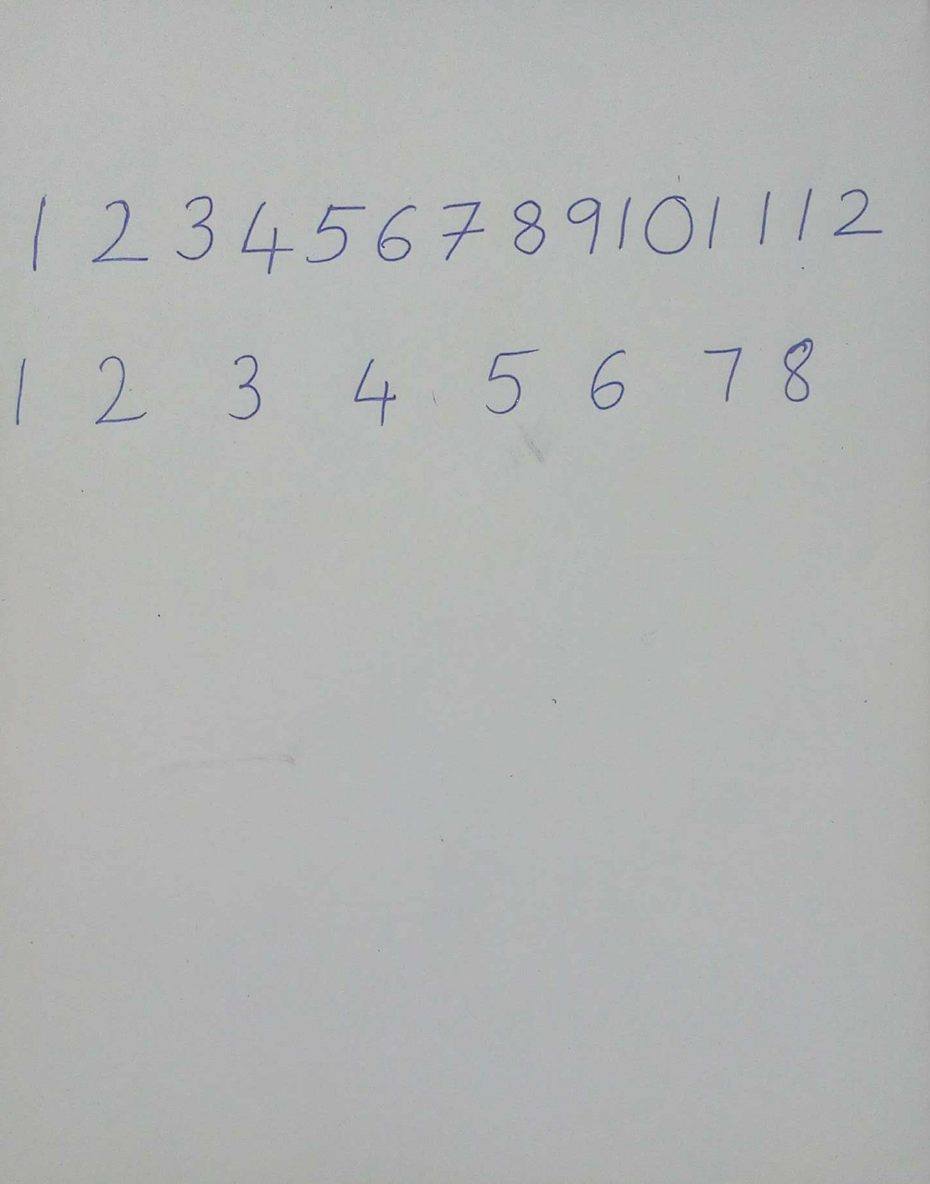 1 2 3 4 5 6 7 8 9 10 11 12
1 2 3 4 5 6 7 8